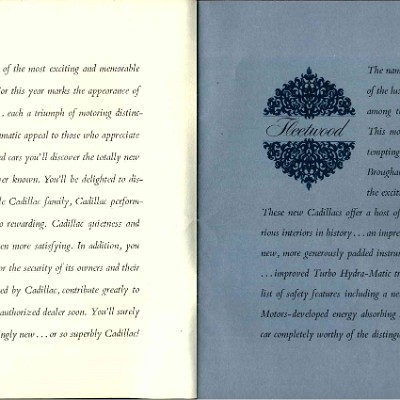 of the most exciting and memorable
or this year marks the appearance of
. each a triumph of motoring distinc-
matic appeal to those who appreciate
d cars you'll discover the totally new
er known. You'll be delighted to dis-
le Cadillac family, Cadillac perform-
o rewarding. Cadillac quietness and
en more satisfying. In addition, you
or the security of its owners and their
ed by Cadillac, contribute greatly to
authorized dealer soon. You'll surely
ingly new...or so superbly Cadillac!
Fleetwood
The nam
of the lux
among t
This mo
tempting
Brougham
the excit
These new Cadillacs offer a host of
rious interiors in history...an impre
new, more generously padded instru
...improved Turbo Hydra-Matic tr
list of safety features including a ne
Motors-developed energy absorbing
car completely worthy of the distingu